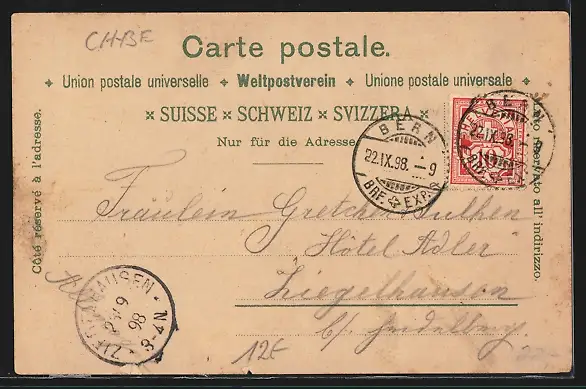 CHBE
Carte postale.
✦ Union postale universelle ✦ Weltpostverein ✦ Unione postale universale ✦
× SUISSE × SCHWEIZ × SVIZZERA ×
Nur für die Adresse
Côté réservé à l'adresse.
Lato riservato all' indirizzo.
BERN
22.IX.98. – 9
BRF. EXP.
BERN
22.IX.98. – 9
10
Fräulein Gretchen
Hôtel Adler
Ziegelhausen
b/ Heidelberg.
ZIEGELHAUSEN
23 9
98
8-9N
12E